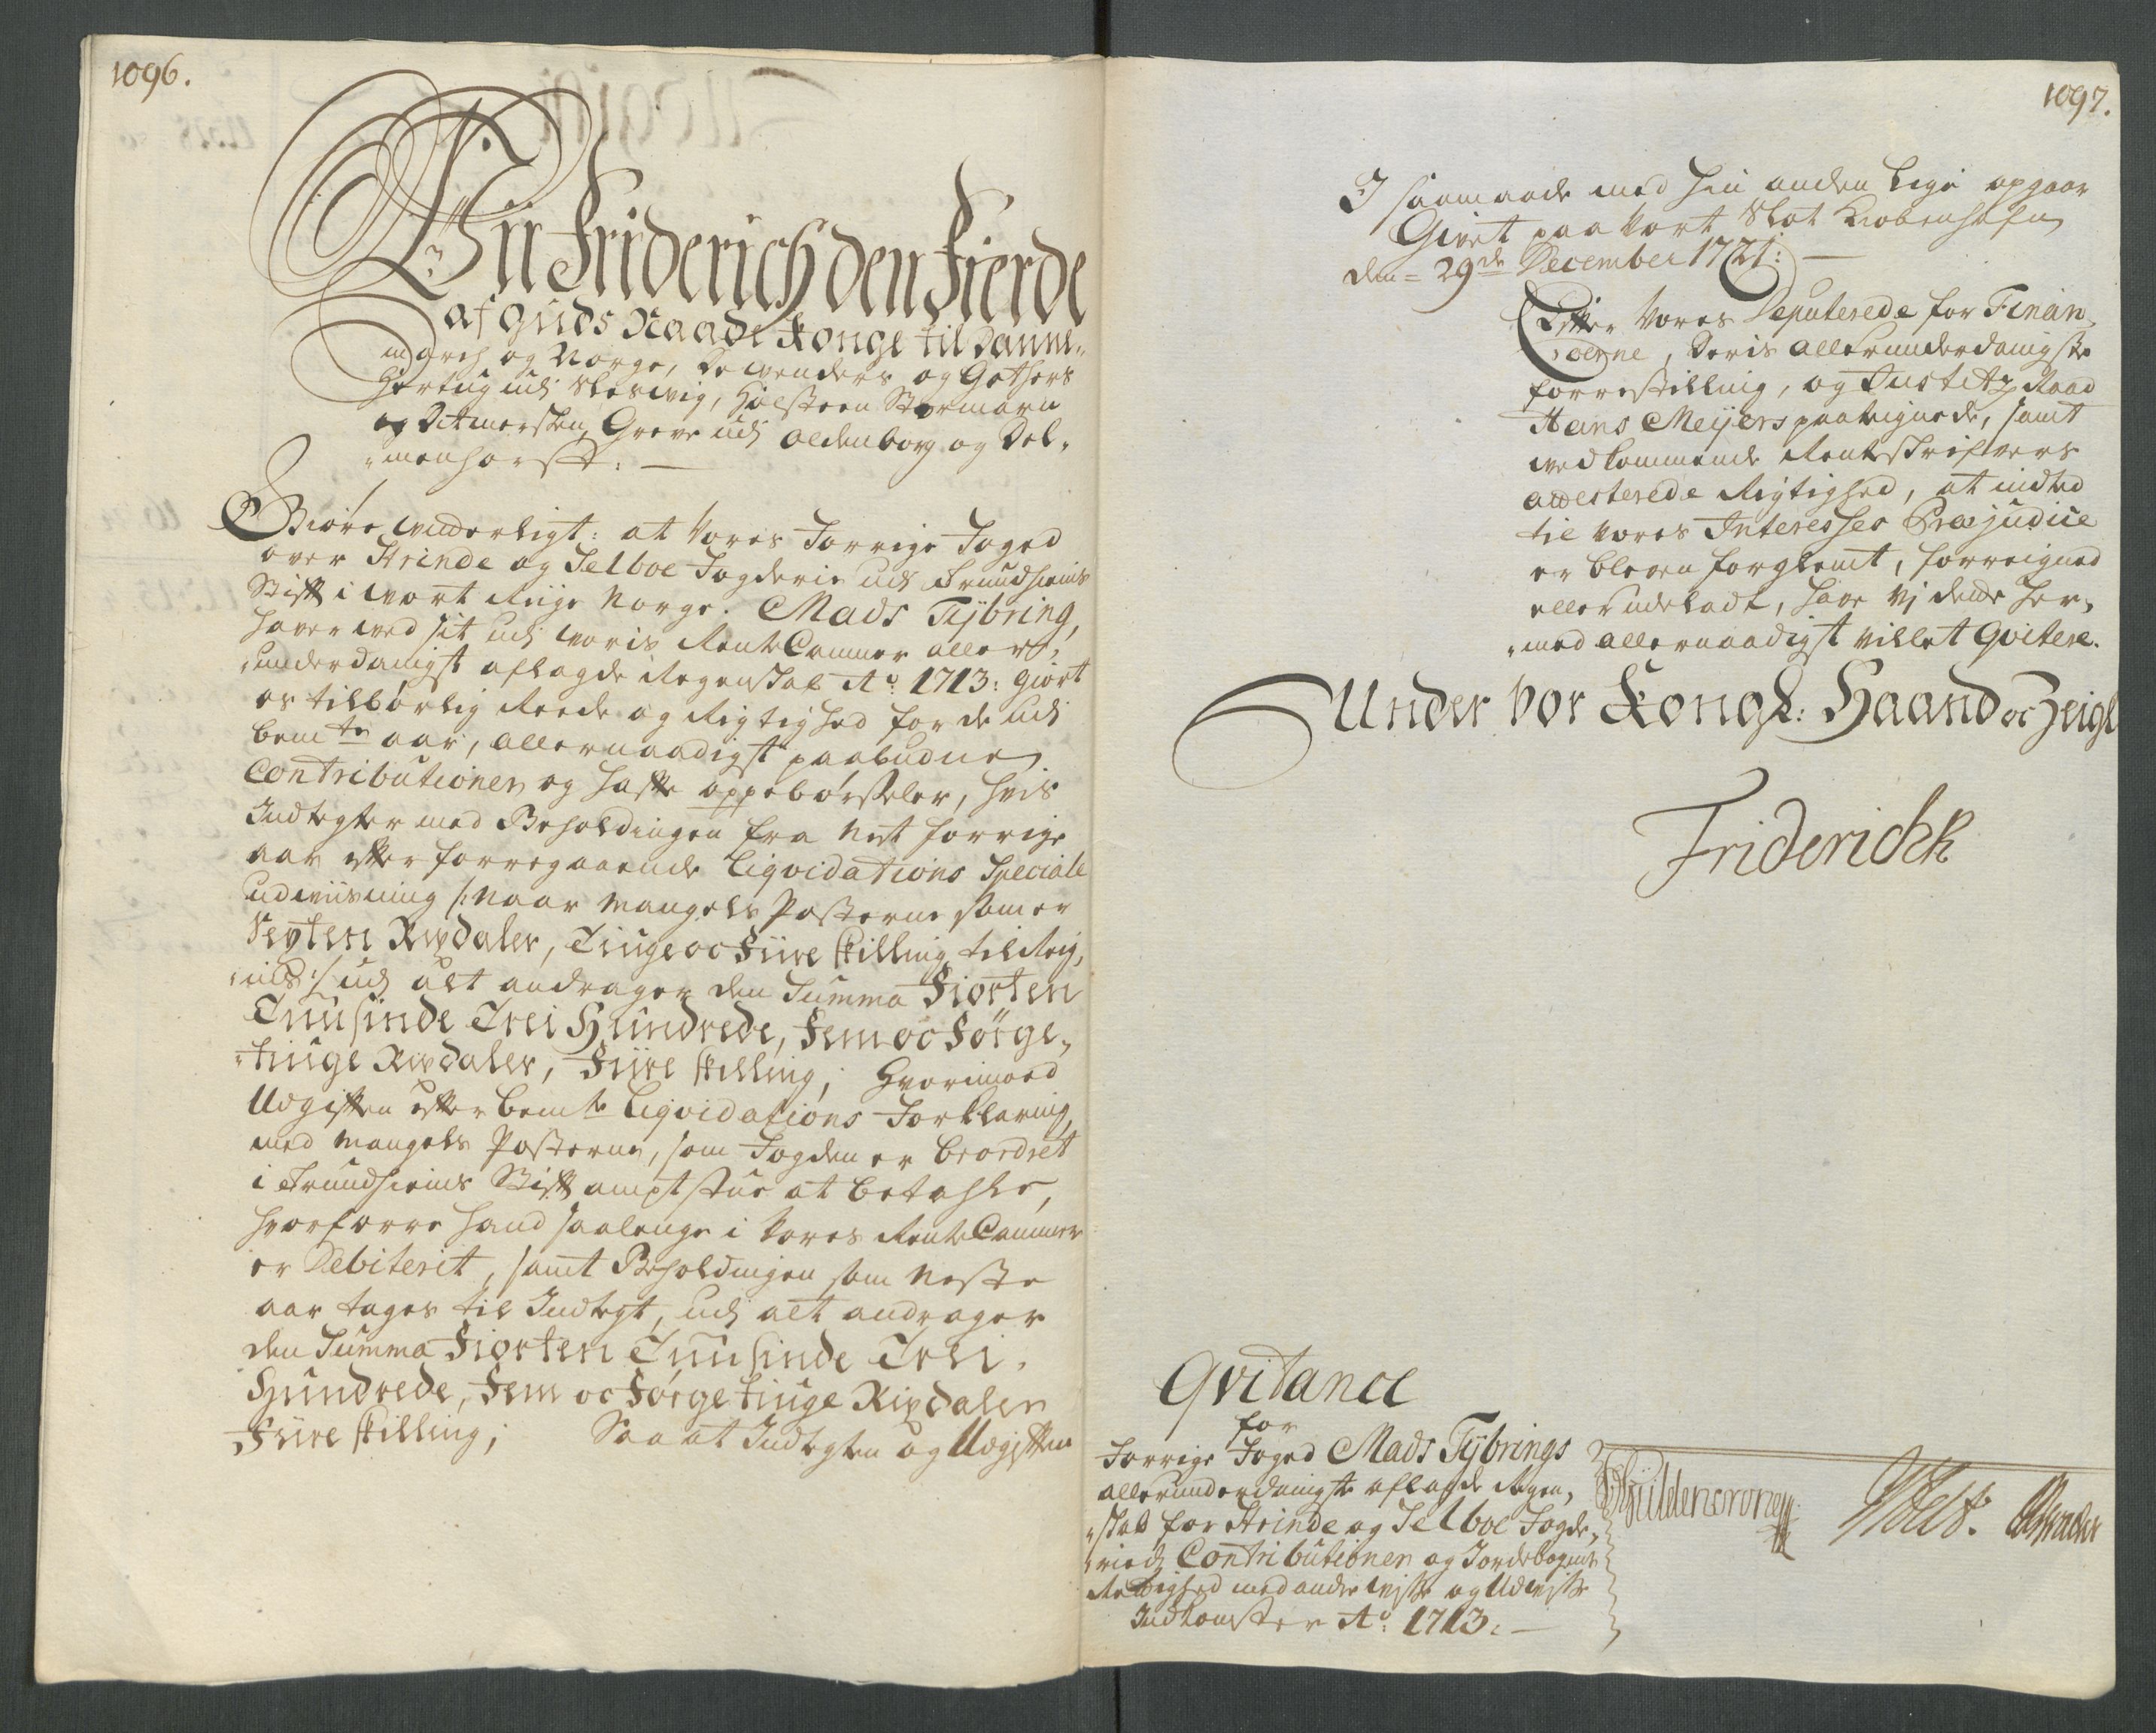 1096.
Wii Friderich den Fierde
af Guds Naade Konge til Danne-
march og Norge, De Wenders og Gothers
Hertug udi Slesvig, Holsteen Stormarn
og Ditmersken, Greve udi Oldenborg og Del-
"menhorst: —
Giøre witterligt: at Vores Forrige Foged
over Strinde og Selboe Fogderie udi Trundhiems
Stift i wort Riige Norge. Mads Tÿbring,
haver wed sit udi woris Rente Cammer aller,
"underdanigst aflagde Regenskab Ao: 1713: giort
os tilbørlig Reede og Rigtighed for de udi
bemte aar, allernaadigst paabudne
Contributioner og faste oppebørseler, hvis
Indtegter med Beholdingen fra nest forrige
aar efter forregaaende Liqvidations Speciale
udwiisning /: naar Mangels Posterne som er
Seyten Rixdaler, Tiuge oc Fiire skilling til Reig,
"nis :/ udi alt andrager den Summa Fiorten
Tuusinde Trei Hundrede, Fem oc Førge,
"tiuge Rixdaler, Fiire skilling; Hvorimoed
Udgiften efter bemte Liqvidations Forklaring,
med Mangels Posterne, som Fogden er beordret
i Trundhiems Stift amptstue at betahle,
hvorforre hand saalenge i Vores Rente Cammer
er Debiterit, samt Beholdingen som neste
aar tages til Indtegt, udi alt andrager
den Summa Fiorten Tuusinde Trei,
Hundrede, Fem oc Førgetiuge Rixdaler
Fiire skilling; Saa at Indtegten og Udgiften
1097.
I saamaade med hin anden lige opgaar
Givet paa Vort Slot Kiøbenhafn
den = 29de December 1721: —
Efter Vores Deputerede for Finan,
"cerne, Deris allerunderdanigste
forrestilling, og Justitz Raad
Hans Meÿers paategnede, samt
wedkommende Renteskrifwers
attesterede Rigtighed, at indtet
til Vores Interesses Præjudice
er bleven forglemt, forreigned
eller udeladt, have Vj dette her,
"med allernaadigst villet Qvitere.
Under Vor Kongl: Haand oc Zeigl
Friderich R
Qvitance
for
Forrige Foged Mads Tÿbrings
allerunderdanigste aflagde Regen,
"skab for Strinde og Selboe Fogde,
"ries Contributioner og Jordebogens
Rettighed med andre wisse og Uwisse
Indkomster Ao: 1713: —
Güldencrone